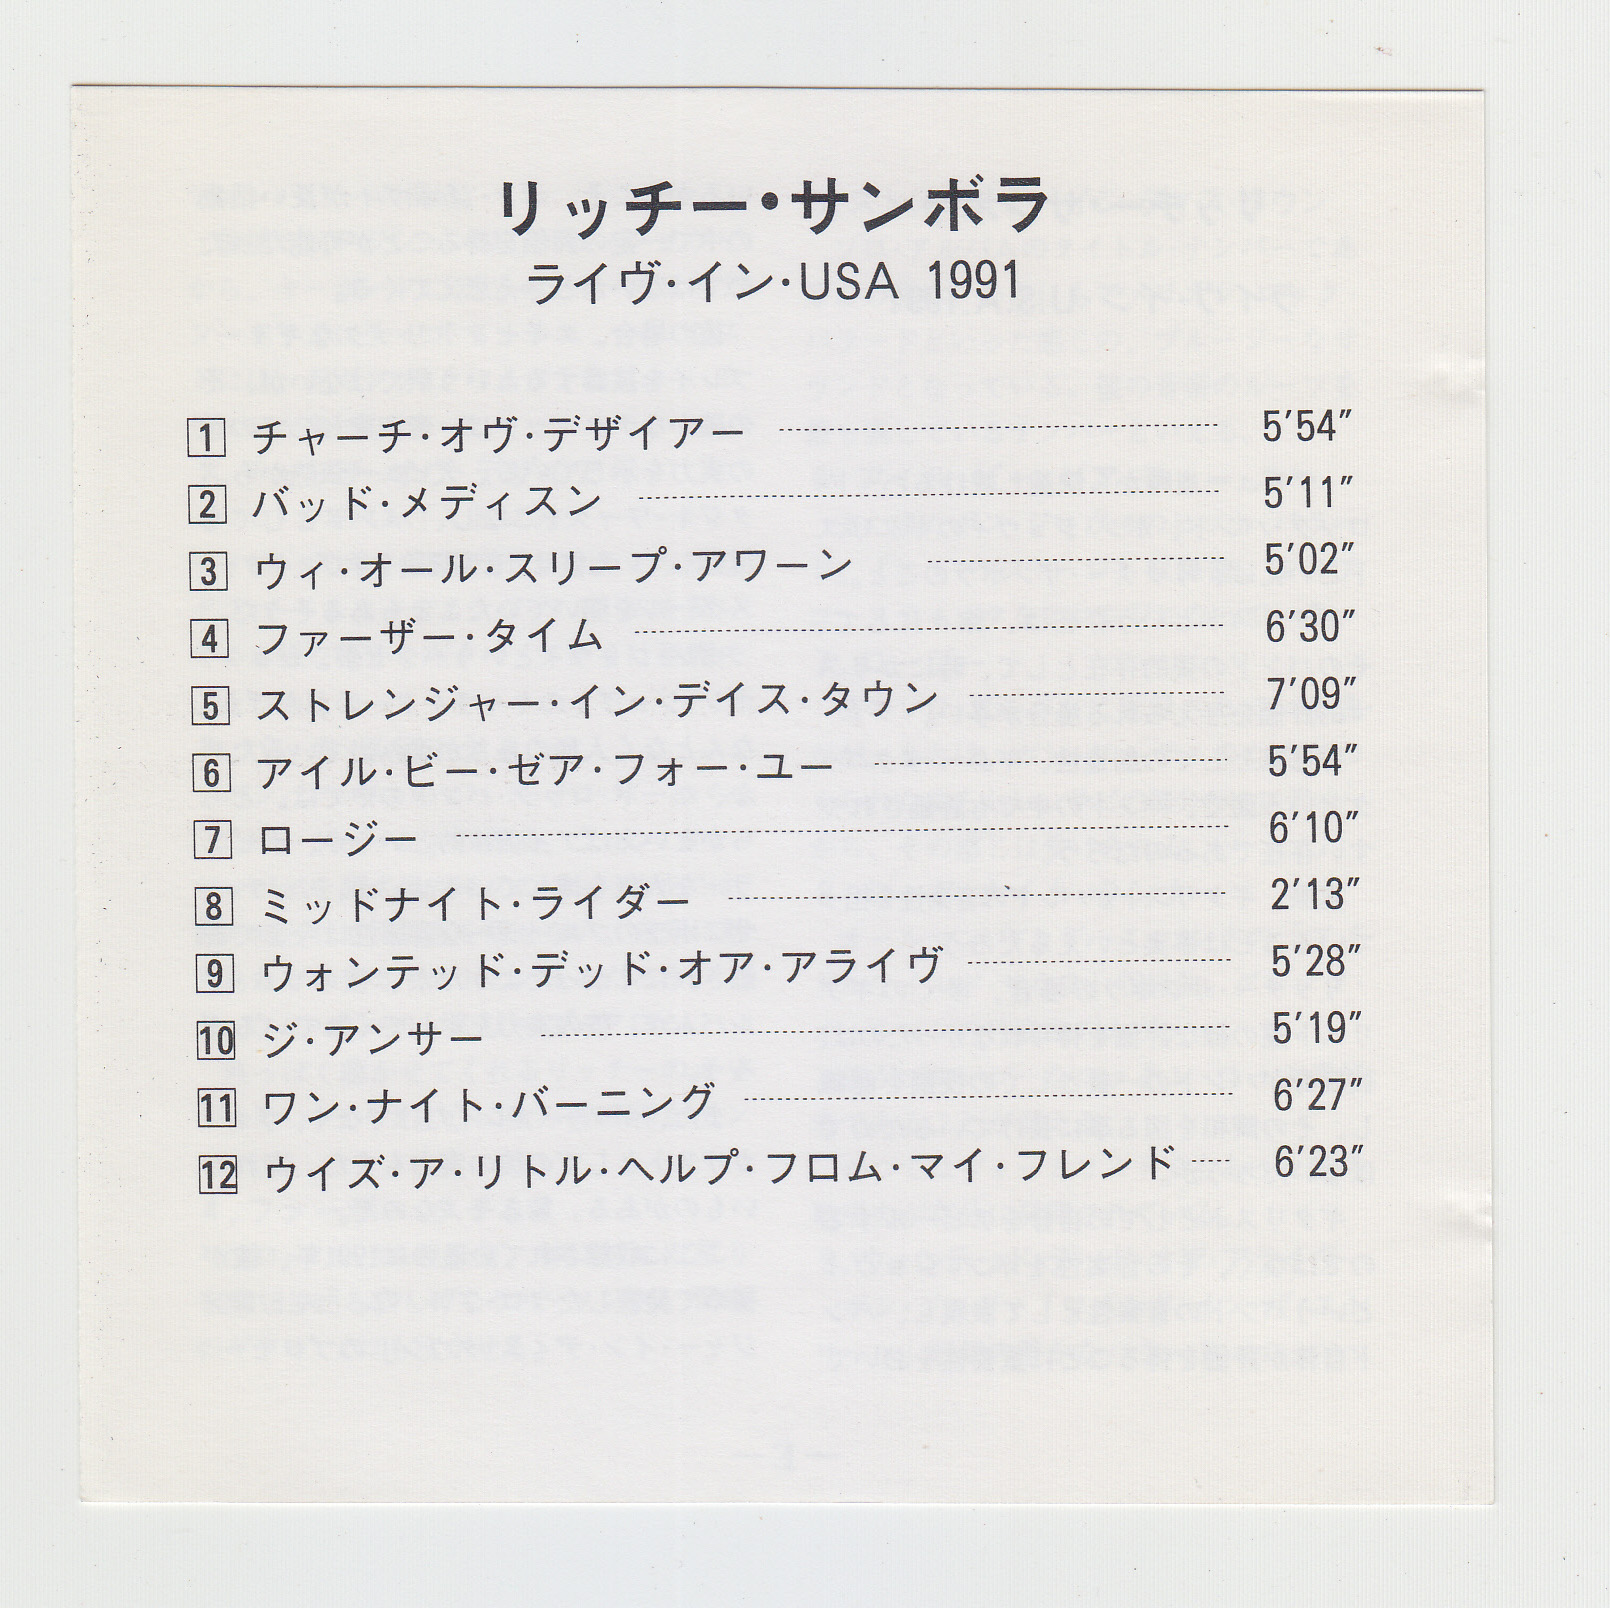 リッチー・サンボラ
ライヴ・イン・USA 1991
1 チャーチ・オヴ・デザイアー 5′54″
2 バッド・メディスン 5′11″
3 ウィ・オール・スリープ・アワーン 5′02″
4 ファーザー・タイム 6′30″
5 ストレンジャー・イン・デイス・タウン 7′09″
6 アイル・ビー・ゼア・フォー・ユー 5′54″
7 ロージー 6′10″
8 ミッドナイト・ライダー 2′13″
9 ウォンテッド・デッド・オア・アライヴ 5′28″
10 ジ・アンサー 5′19″
11 ワン・ナイト・バーニング 6′27″
12 ウイズ・ア・リトル・ヘルプ・フロム・マイ・フレンド 6′23″